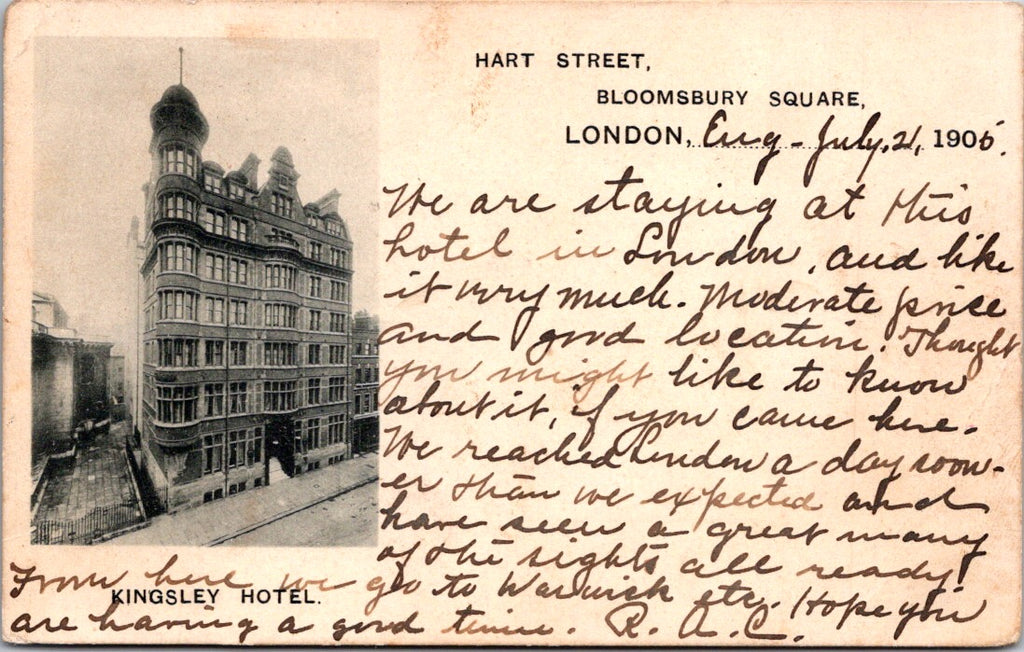 HART STREET,
BLOOMSBURY SQUARE,
LONDON, Eng - July, 21, 1905.
We are staying at this
hotel in London, and like
it very much. Moderate price
and good location. Thought
you might like to know
about it, if you came here.
We reached London a day soon-
er than we expected and
have seen a great many
of the sights all ready.
From here we go to Warwick etc. Hope you
KINGSLEY HOTEL.
are having a good time. R. A. C.